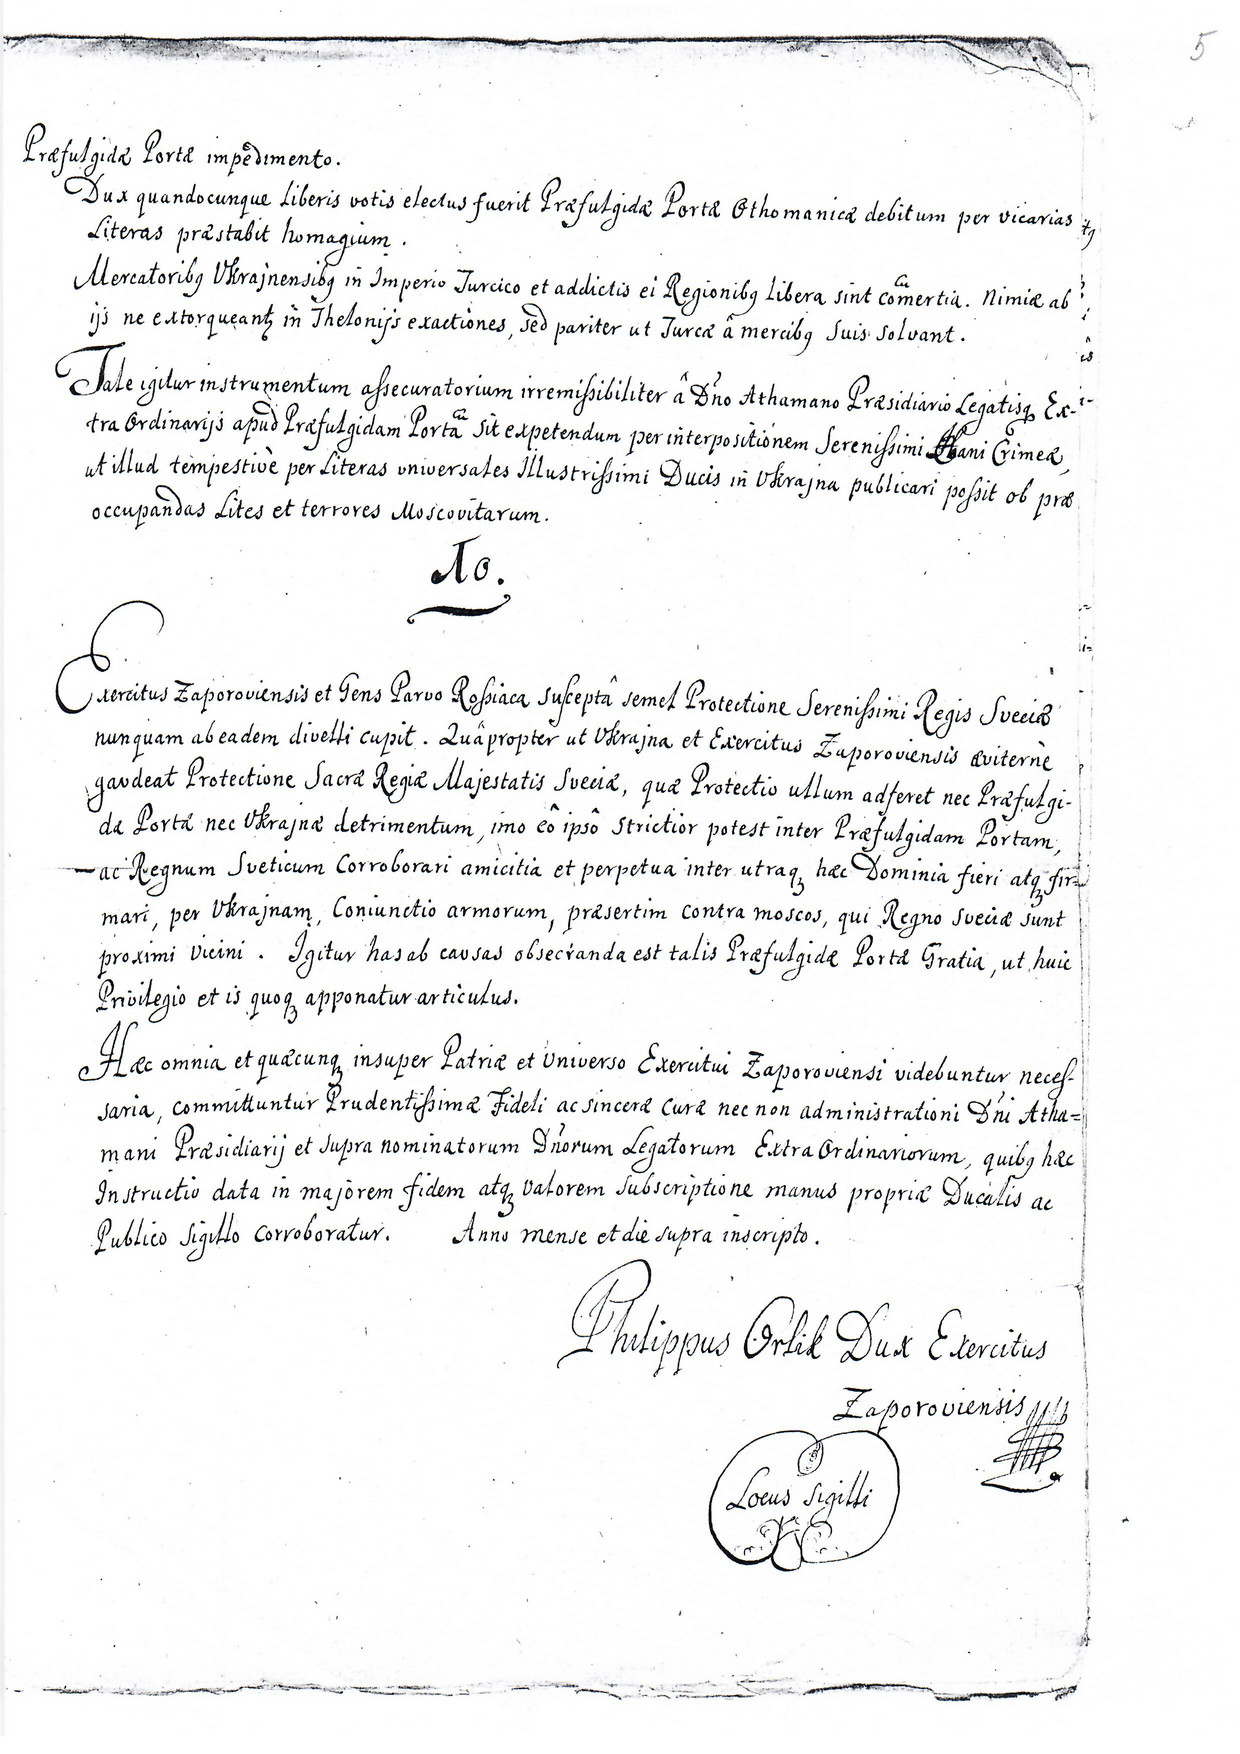 5
Præfulgidæ Portæ impedimento.
Dux quandocunque liberis votis electus fuerit Præfulgidæ Portæ Othomanicæ debitum per vicarias
Literas præstabit homagium.
Mercatoribꝫ Vkrajnensibꝫ in Imperio Turcico et addictis ei Regionibꝫ libera sint com̃ertia. Nimiæ ab
ijs ne extorqueantꝫ in Thelonijs exactiones, sed pariter ut Turcæ â mercibꝫ suis solvant.
Tale igitur instrumentum assecuratorium irremissibiliter â Dño Athamano Præsidiario Legatisqꝫ Ex-
tra Ordinarijs apud Præfulgidam Portã sit expetendum per interpositionem Serenissimi Hani Crimeæ,
ut illud tempestivè per Literas universales Illustrissimi Ducis in Vkrajna publicari possit ob præ
occupandas Lites et terrores Moscovitarum.
10.
Exercitus Zaporoviensis et Gens Parvo Rossiaca susceptâ semel Protectione Serenissimi Regis Sveciæ
nunquam ab eadem divelli cupit. Quâpropter ut Vkrajna et Exercitus Zaporoviensis æviternè
gaudeat Protectione Sacræ Regiæ Majestatis Sveciæ, quæ Protectio ullum adferet nec Præfulgi-
dæ Portæ nec Vkrajnæ detrimentum, imo eô ipsô strictior potest inter Præfulgidam Portam,
ac Regnum Sveticum corroborari amicitia et perpetua inter utraqꝫ hæc Dominia fieri atqꝫ fir=
mari, per Vkrajnam, Coniunctio armorum, præsertim contra moscos, qui Regno Sveciæ sunt
proximi vicini. Igitur has ob causas obsecranda est talis Præfulgidæ Portæ Gratia, ut huic
Privilegio et is quoqꝫ apponatur articulus.
Hæc omnia et quæcunqꝫ insuper Patriæ et Universo Exercitui Zaporoviensi videbuntur neces-
saria, committuntur Prudentissimæ Fideli ac sinceræ curæ nec non administrationi Dñi Atha=
mani Præsidiarij et supra nominatorum Dñorum Legatorum Extra Ordinariorum, quibꝫ hæc
Instructio data in majorem fidem atqꝫ valorem subscriptione manus propriæ Ducalis ac
Publico Sigillo corroboratur. Anno mense et die supra inscripto.
Philippus Orlik Dux Exercitus
Zaporoviensis
Locus Sigilli